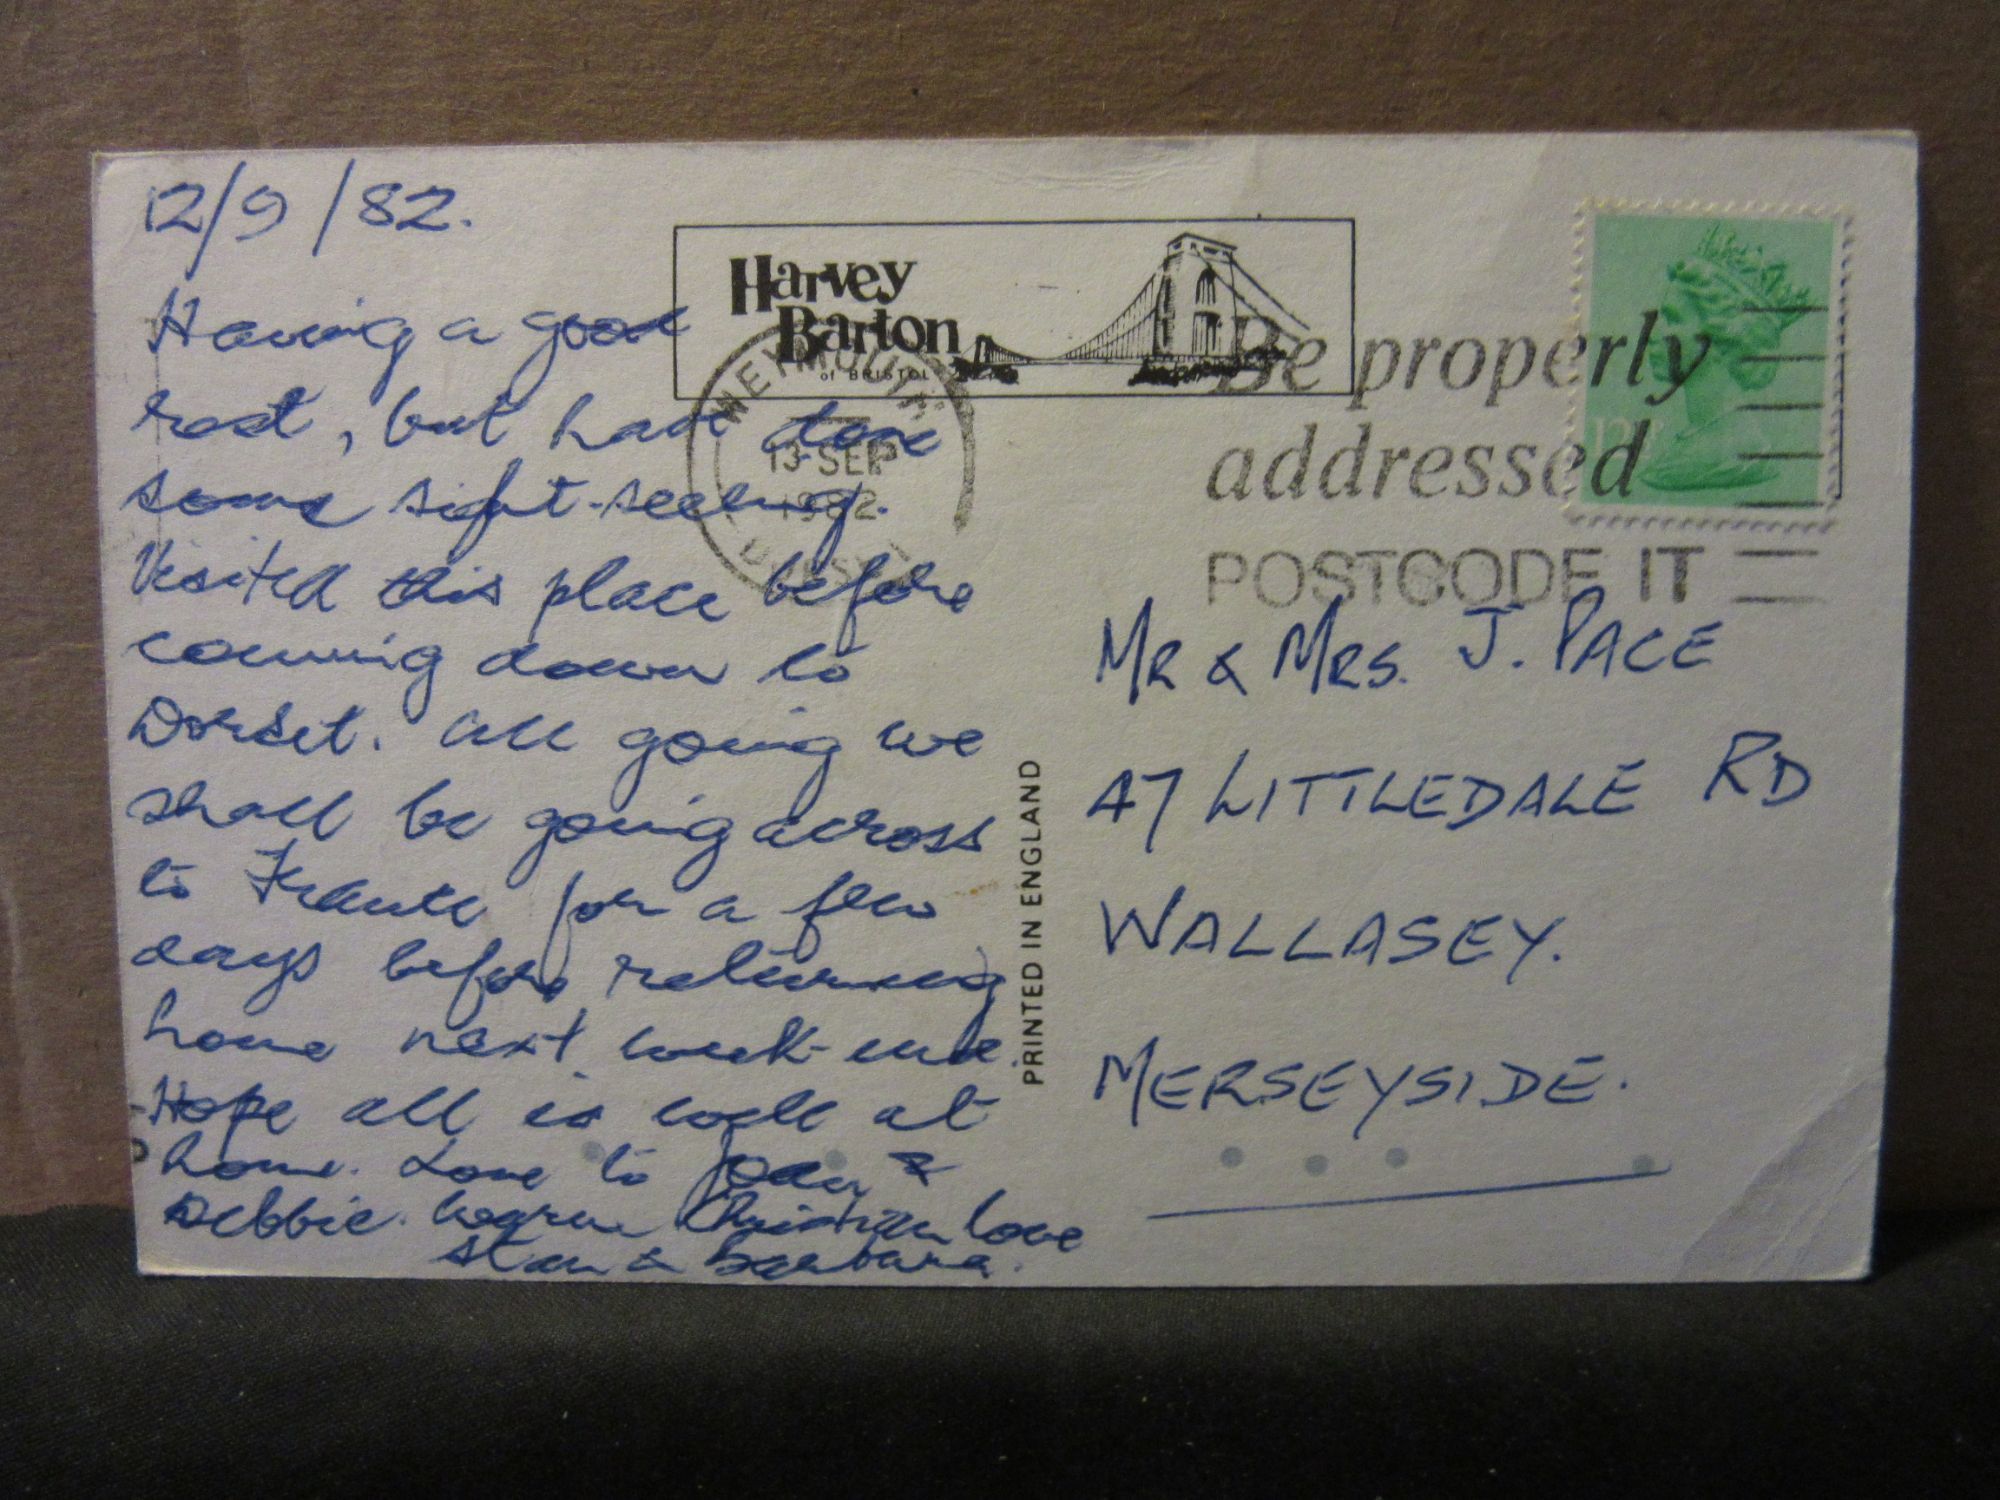 12/9/82.
Having a good
rest, but have done
some sight-seeing.
Visited this place before
coming down to
Dorset. All going we
shall be going across
to France for a few
days before returning
home next week-end
Hope all is well at
home. Love to &
Debbie. Warm Christian love
Stan & Barbara.
Harvey
Barton
of BRISTOL
WEYMOUTH
13 SEP
1982
Be properly
addressed
POSTCODE IT
12
PRINTED IN ENGLAND
MR & MRS. J. PACE
47 LITTLEDALE RD
WALLASEY.
MERSEYSIDE.